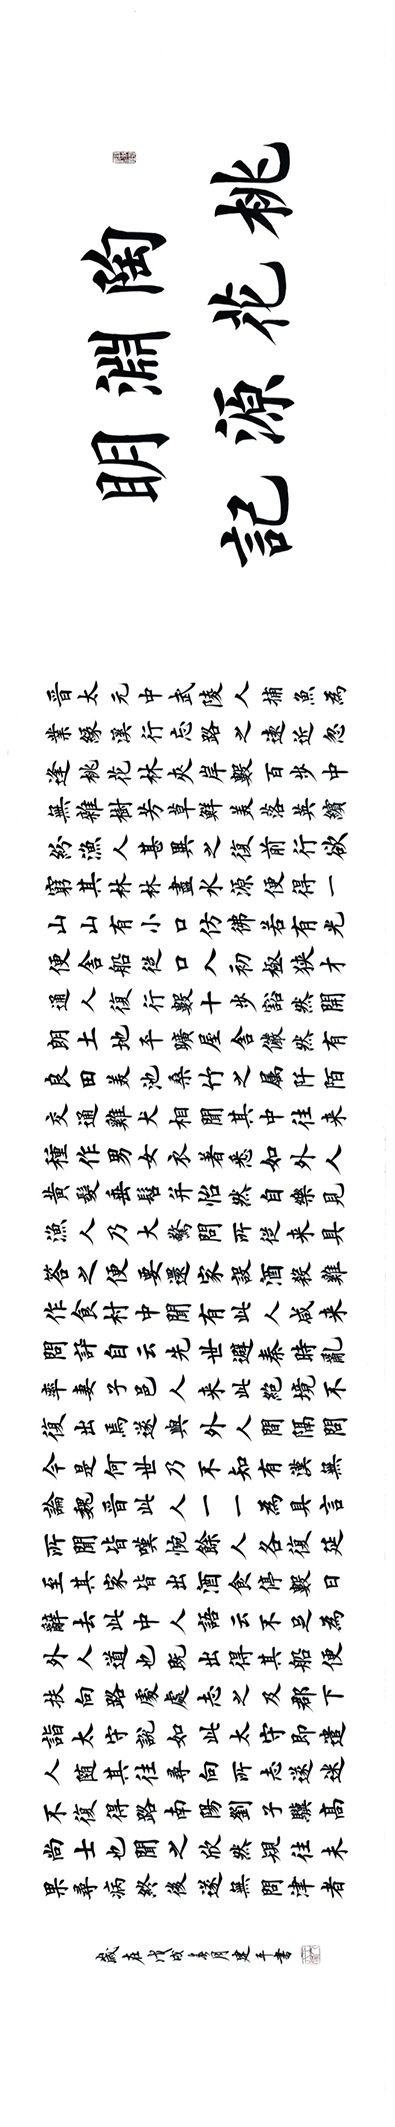 桃花源記
陶淵明
晉太元中武陵人捕魚為
業緣溪行忘路之遠近忽
逢桃花林夾岸數百步中
無雜樹芳草鮮美落英繽
紛漁人甚異之復前行欲
窮其林林盡水源便得一
山山有小口仿佛若有光
便舍船從口入初極狹才
通人復行數十步豁然開
朗土地平曠屋舍儼然有
良田美池桑竹之属阡陌
交通雞犬相聞其中往来
種作男女衣著悉如外人
黄髮垂髫并怡然自樂見
漁人乃大驚問所從来具
答之便要還家設酒殺雞
作食村中聞有此人咸来
問訊自云先世避秦時亂
率妻子邑人来此絕境不
復出焉遂與外人間隔問
今是何世乃不知有漢無
論魏晉此人一一為具言
所聞皆嘆惋餘人各復延
至其家皆出酒食停數日
辭去此中人語云不足為
外人道也既出得其船便
扶向路處處志之及郡下
詣太守說如此太守即遣
人隨其往尋向所志遂迷
不復得路南陽劉子驥高
尚士也聞之欣然規往未
果尋病終後遂無問津者
歲在戊戌冬月建平書